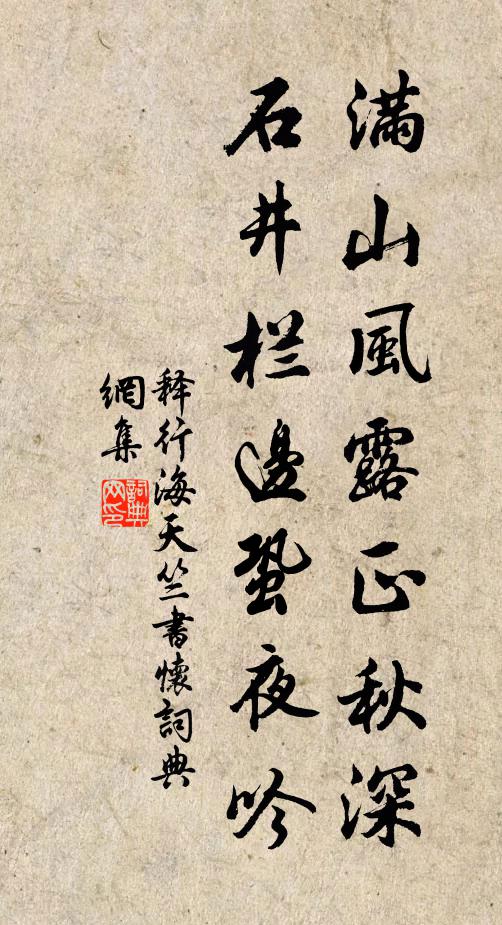 满山風露正秋深
石井栏邊蛩夜吟
释行海天竺書懷詞典
網集
詞典網印